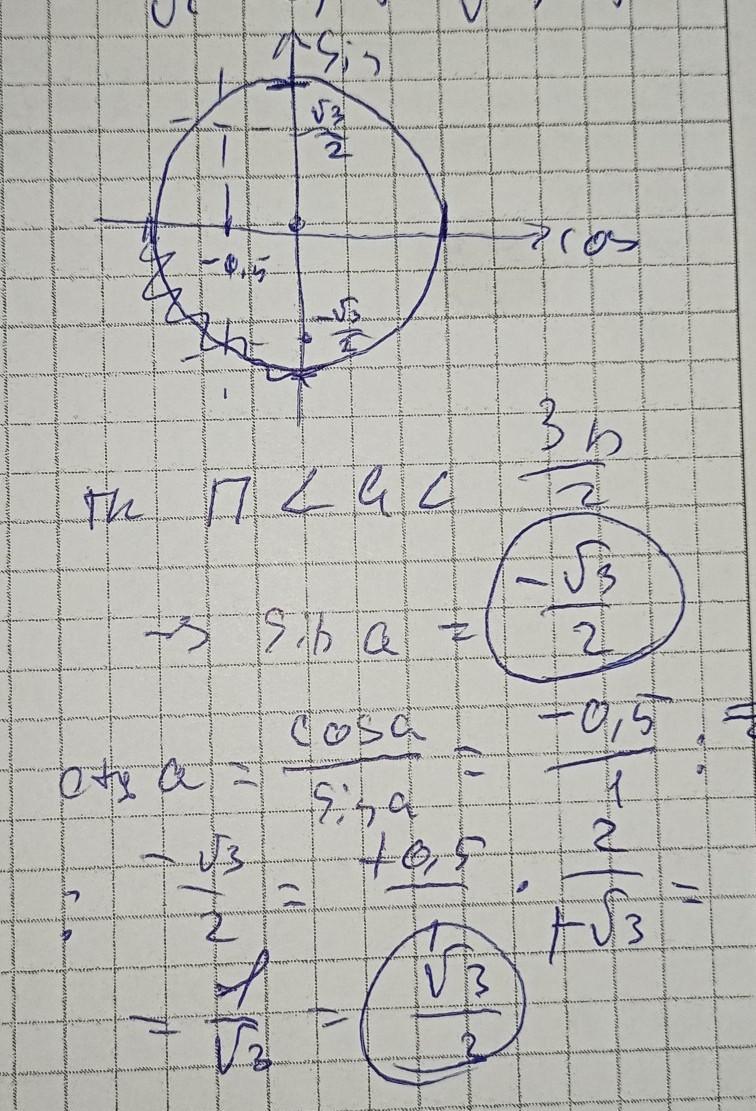 sin
√3/2
cos
-0,5
-√3/2
тк П < a < 3п/2
→ sin a = -√3/2
ctg a = cos a / sin a = -0,5/1 : =
: -√3/2 = +0,5/1 · 2/+√3 =
= 1/√3 = √3/2